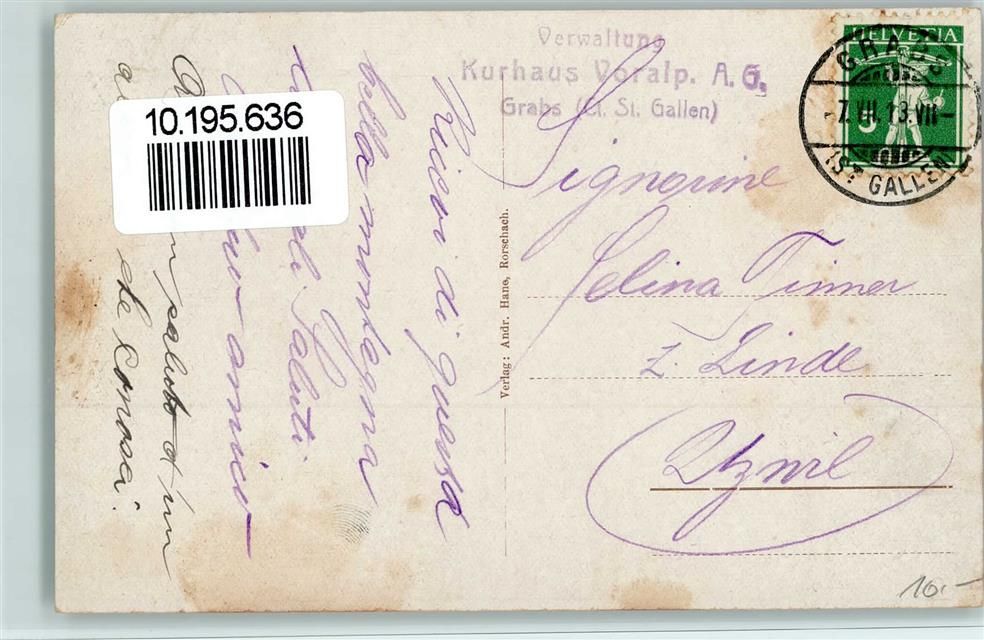 10.195.636
Verwaltung
Kurhaus Voralp. A. G.
Grabs (Ct. St. Gallen)
HELVETIA
5
GRABS
-7.VII.13.VII-
(ST GALLEN)
Signorine
Selina Tinner
z. Linde
Uzwil
Verlag: Andr. Hane, Rorschach.
di questa
bella montagna
Saluti.
amico
saluto d'un
che Conosci.
10.-